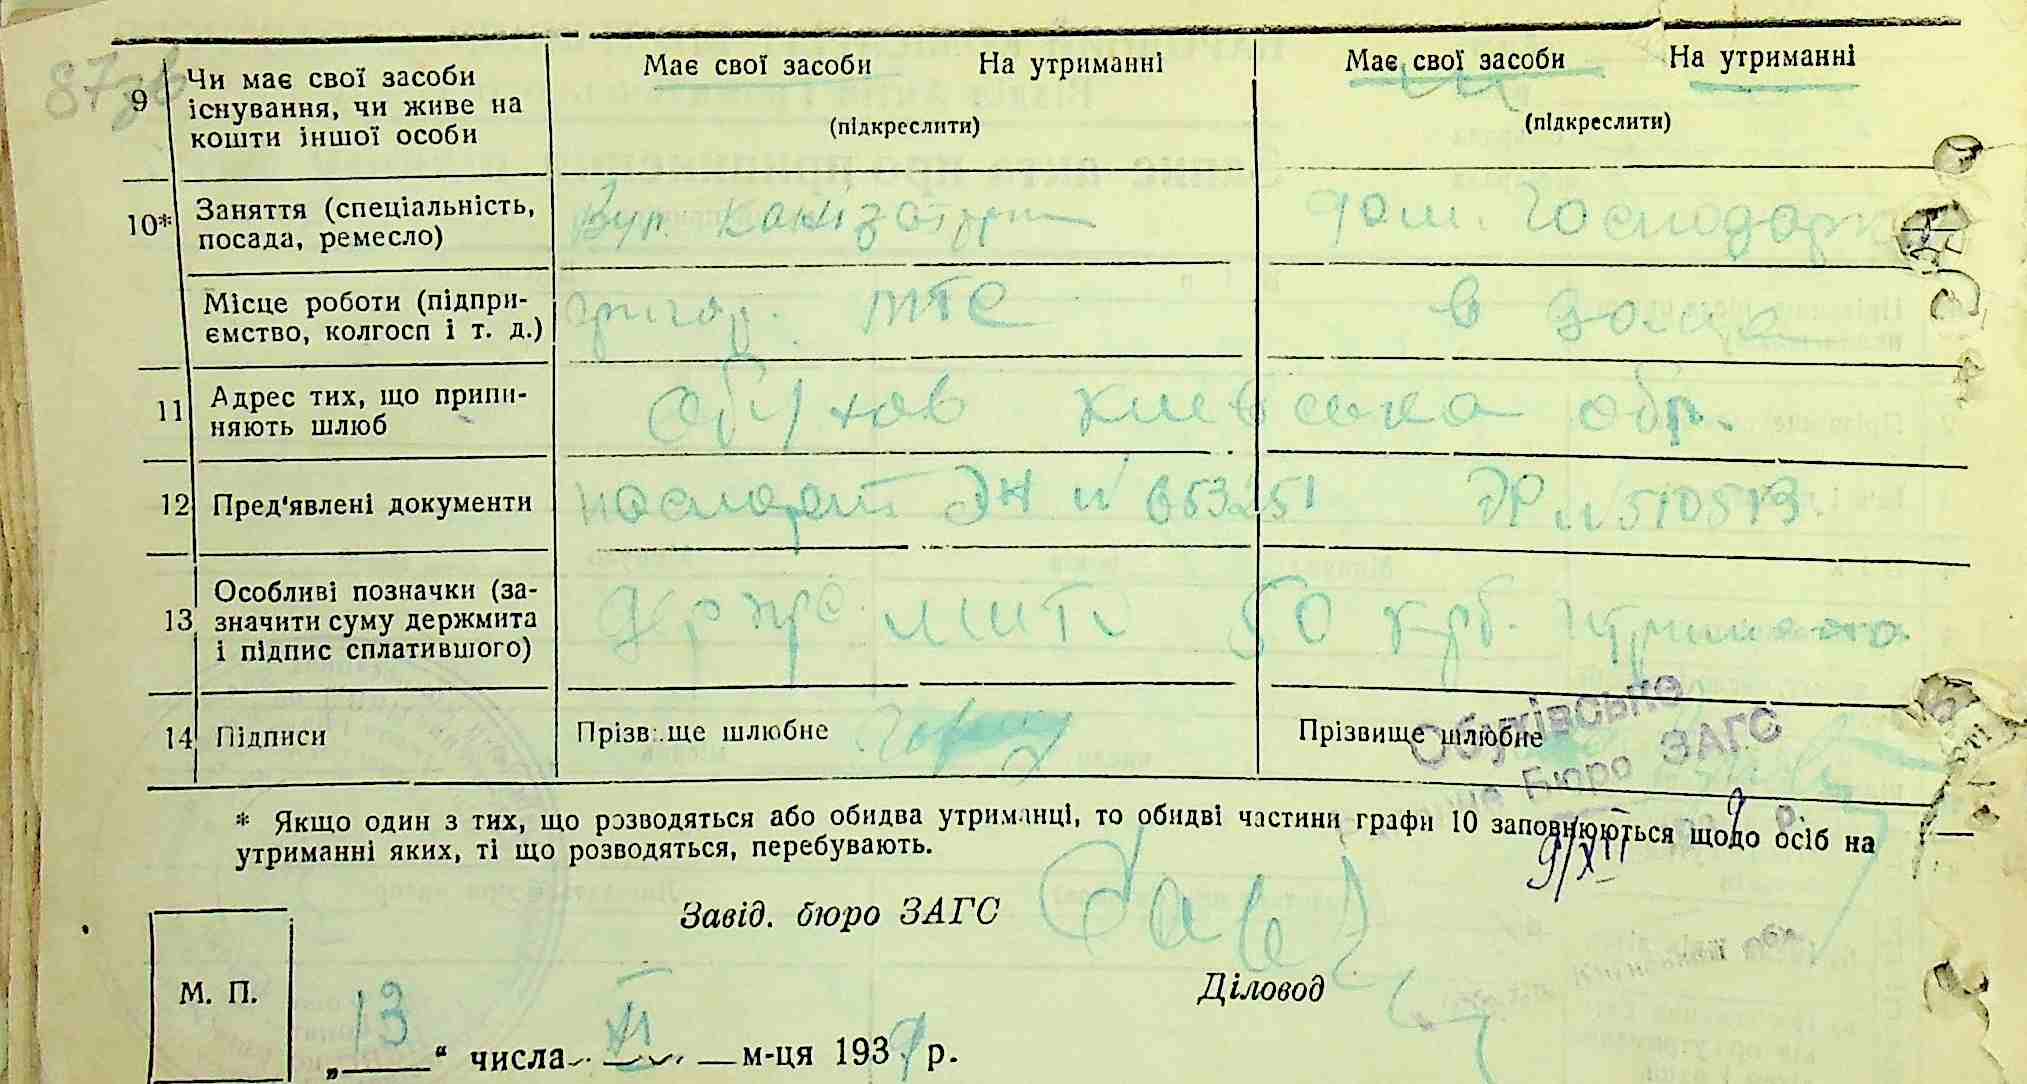 87зв
9 Чи має свої засоби існування, чи живе на кошти іншої особи
Має свої засоби На утриманні
(підкреслити)
Має свої засоби На утриманні
(підкреслити)
10* Заняття (спеціальність, посада, ремесло)
дом. господарка
Місце роботи (підпри-
ємство, колгосп і т. д.)
МТС
в дома
11 Адрес тих, що припи-
няють шлюб
Обухов Київська обл.
12 Пред'явлені документи
паспорт ЭН № 653251
ЭР № 510513
13 Особливі позначки (за-
значити суму держмита
і підпис сплатившого)
держ мито 50 крб. отримано
14 Підписи
Прізвище шлюбне
Прізвище шлюбне
Обухівське
Бюро ЗАГС
* Якщо один з тих, що розводяться або обидва утриманці, то обидві частини графи 10 заповнюються щодо осіб на
утриманні яких, ті що розводяться, перебувають.
9/XII
Завід. бюро ЗАГС
Діловод
М. П.
„13“ числа XI м-ця 1939 р.